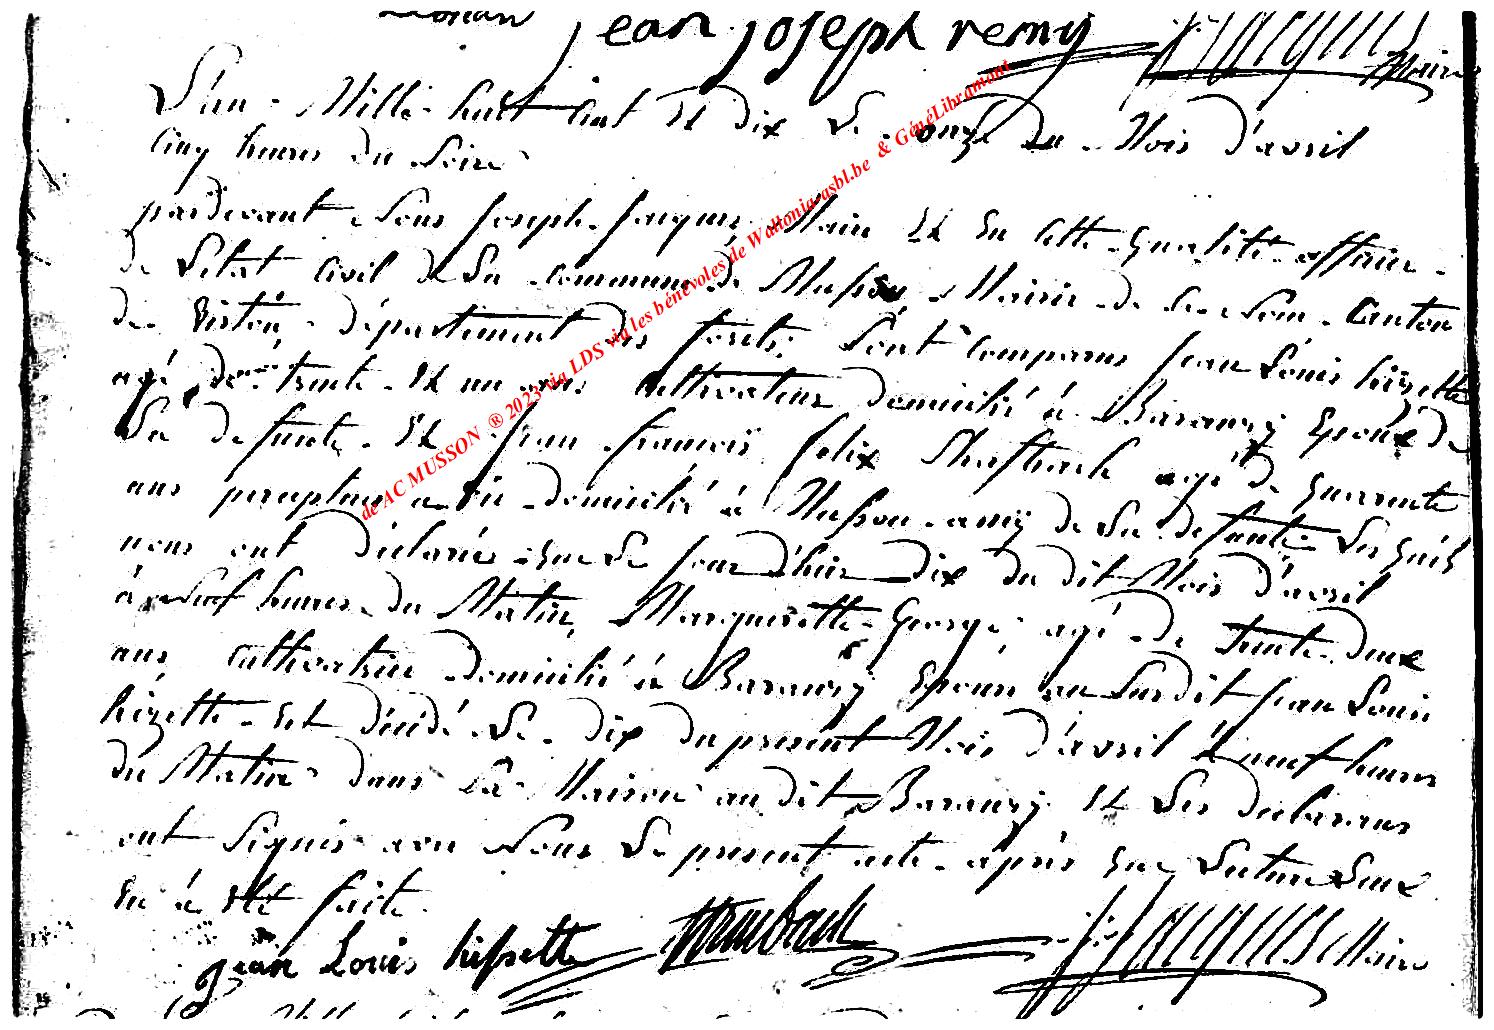 jean joseph remy Maire
L'an Mille huit Cent Et dix Le onze du Mois d'avril
Cinq heures du Soire
pardevant Nous Joseph Jacques Maire Et En Cette Qualité officier
de L'état Civil de La Commune de Musson Mairie de Ce Nom Canton
de Virton, département des forêts, Sont Comparus Jean Louis hizette
agé de trente Et un ans Cultivateur domicilié à Baranzy Epoux de
La defunte Et Jean francois felix agé de Quarante
ans domicilié à Musson amy de La defunte Les Quels
nous ont déclarés que Le Jour d'hier dix du dit Mois d'avril
à Neuf heures du Matin, Marguerette George agé de trente deux
ans Cultivatrice domicilié à Baranzy Epouse au Surdit Jean Louis
hizette Est décédé Le dix du present Mois d'avril à neuf heures
du Matin dans Sa Maison au dit Baranzy Et Les declarans
ont Signés avec Nous Le present acte après que Lecture Leur
En à Eté faite
jean Louis hissette Jacques Maire
de AC MUSSON ® 2023 via LDS via les bénévoles de Wallonia-asbl.be & GénéLibramont